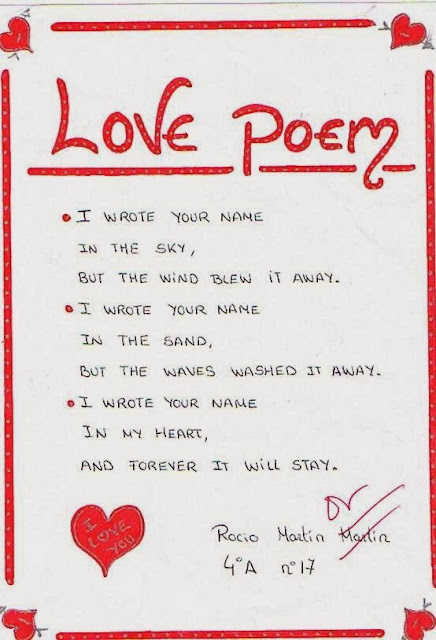 LOVE POEM
I WROTE YOUR NAME
IN THE SKY,
BUT THE WIND BLEW IT AWAY.
I WROTE YOUR NAME
IN THE SAND,
BUT THE WAVES WASHED IT AWAY.
I WROTE YOUR NAME
IN MY HEART,
AND FOREVER IT WILL STAY.
I
LOVE
YOU
Rocio Martín Martín
4ºA nº17